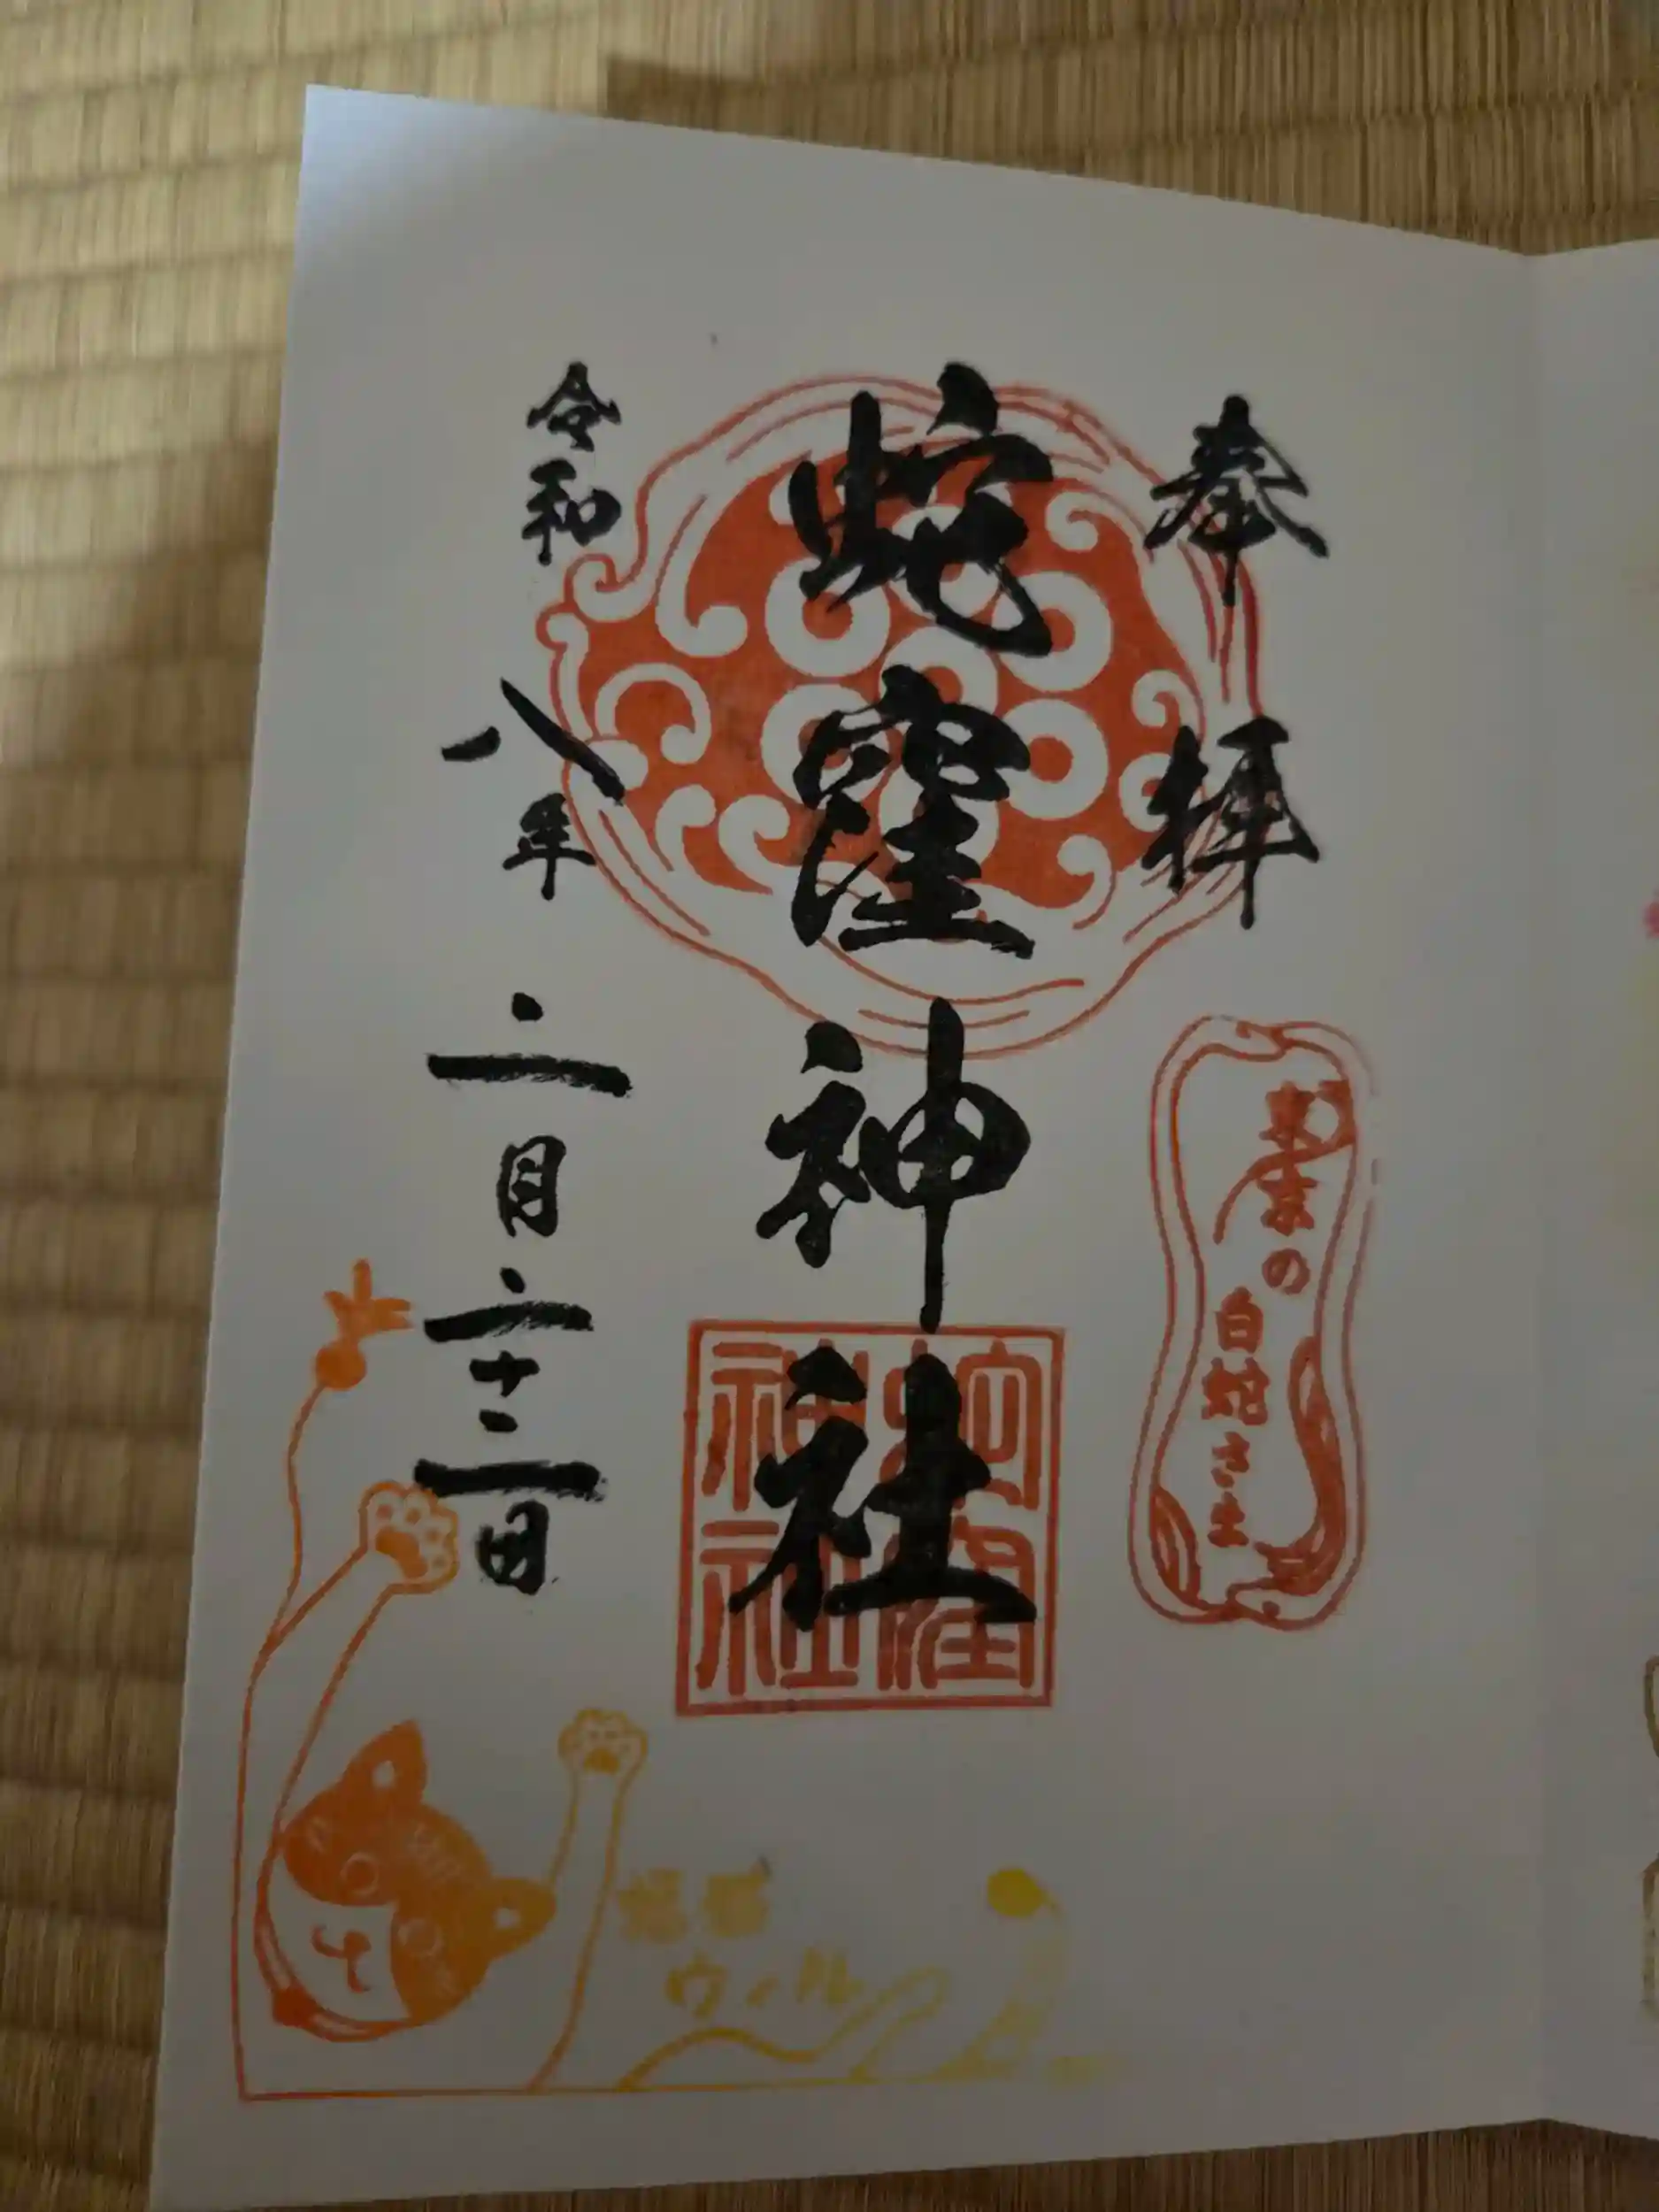 奉拝
東京の
白蛇さま
蛇窪神社
蛇窪
神社
令和八年二月二十二日
ウィル